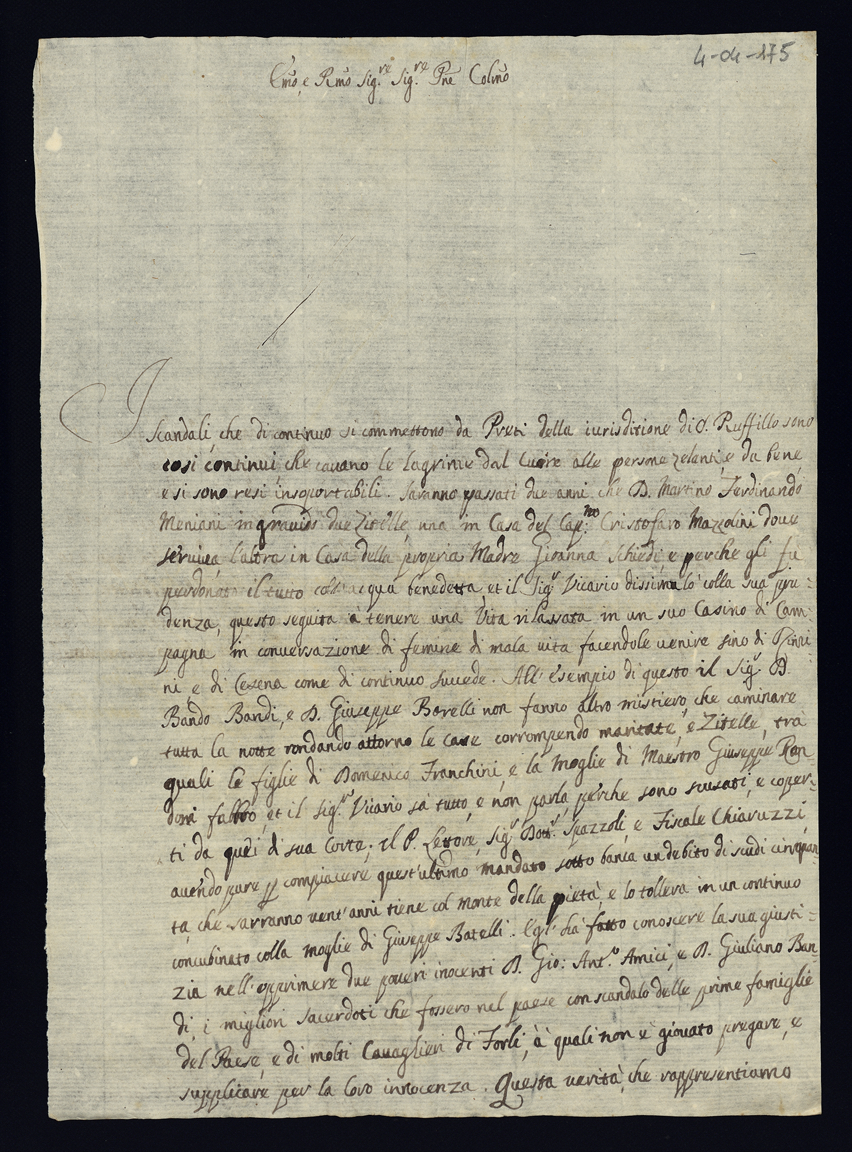 4-04-175
Emo, e Rmo Sig.re Sig.re Pne Colmo
I Scandali, che di continuo si commettono da Preti della iurisditione di S. Ruffillo sono
cosi continui, che cauano le lagrime dal Cuore alle persone zelanti, e da bene
e si sono resi insoportabili. Saranno passati due anni, che D. Martino Ferdinando
Meniani ingrauidò due Zitelle una in Casa del Cap.no Cristofaro Mazzolini doue
seruiua l'altra in Casa della propria Madre Giouanna Schiedi, e perche gli fu
perdonato il tutto coll'acqua benedetta, et il Sig.r Vicario dissimulò colla sua pru=
denza, questo seguita à tenere una Vita rilassata in un suo Casino di Cam=
pagna in conuersazione di femine di mala uita facendole uenire sino di Rimi
ni e di Cesena come di continuo succede. All'esempio di questo il Sig.r D.
Bando Bandi, e D. Giuseppe Borelli non fanno altro mistiero, che caminare
tutta la notte rondando attorno le case corrompendo maritate, e Zitelle, trà
quali le figlie di Domenico Franchini, e la Moglie di Maestro Giuseppe Ron=
doni fabbro, et il Sig.r Vicario sà tutto, e non parla, perche sono scusati, e coper=
ti da quei di sua Corte. Il P. Lettore, Sig.r Dott.r Spazzoli e Fiscale Chiaruzzi
auendo pure p compiacere quest'ultimo mandato sotto banca un debito di scudi cinquan
ta, che sarranno uent'anni tiene col monte della pietà, e lo tollera in un continuo
concubinato colla moglie di Giuseppe Batelli. Egl'hà fatto conoscere la sua giusti=
zia nell'opprimere due poueri inocenti D. Gio: Ant.o Amici, e D. Giuliano Ban
di, i migliori sacerdoti che fossero nel paese con scandalo delle prime famiglie
del Paese, e di molti Cauaglieri di Forlì, à quali non è giouato pregare, e
supplicare per la loro innocenza. Questa uerità, che rappresentiamo